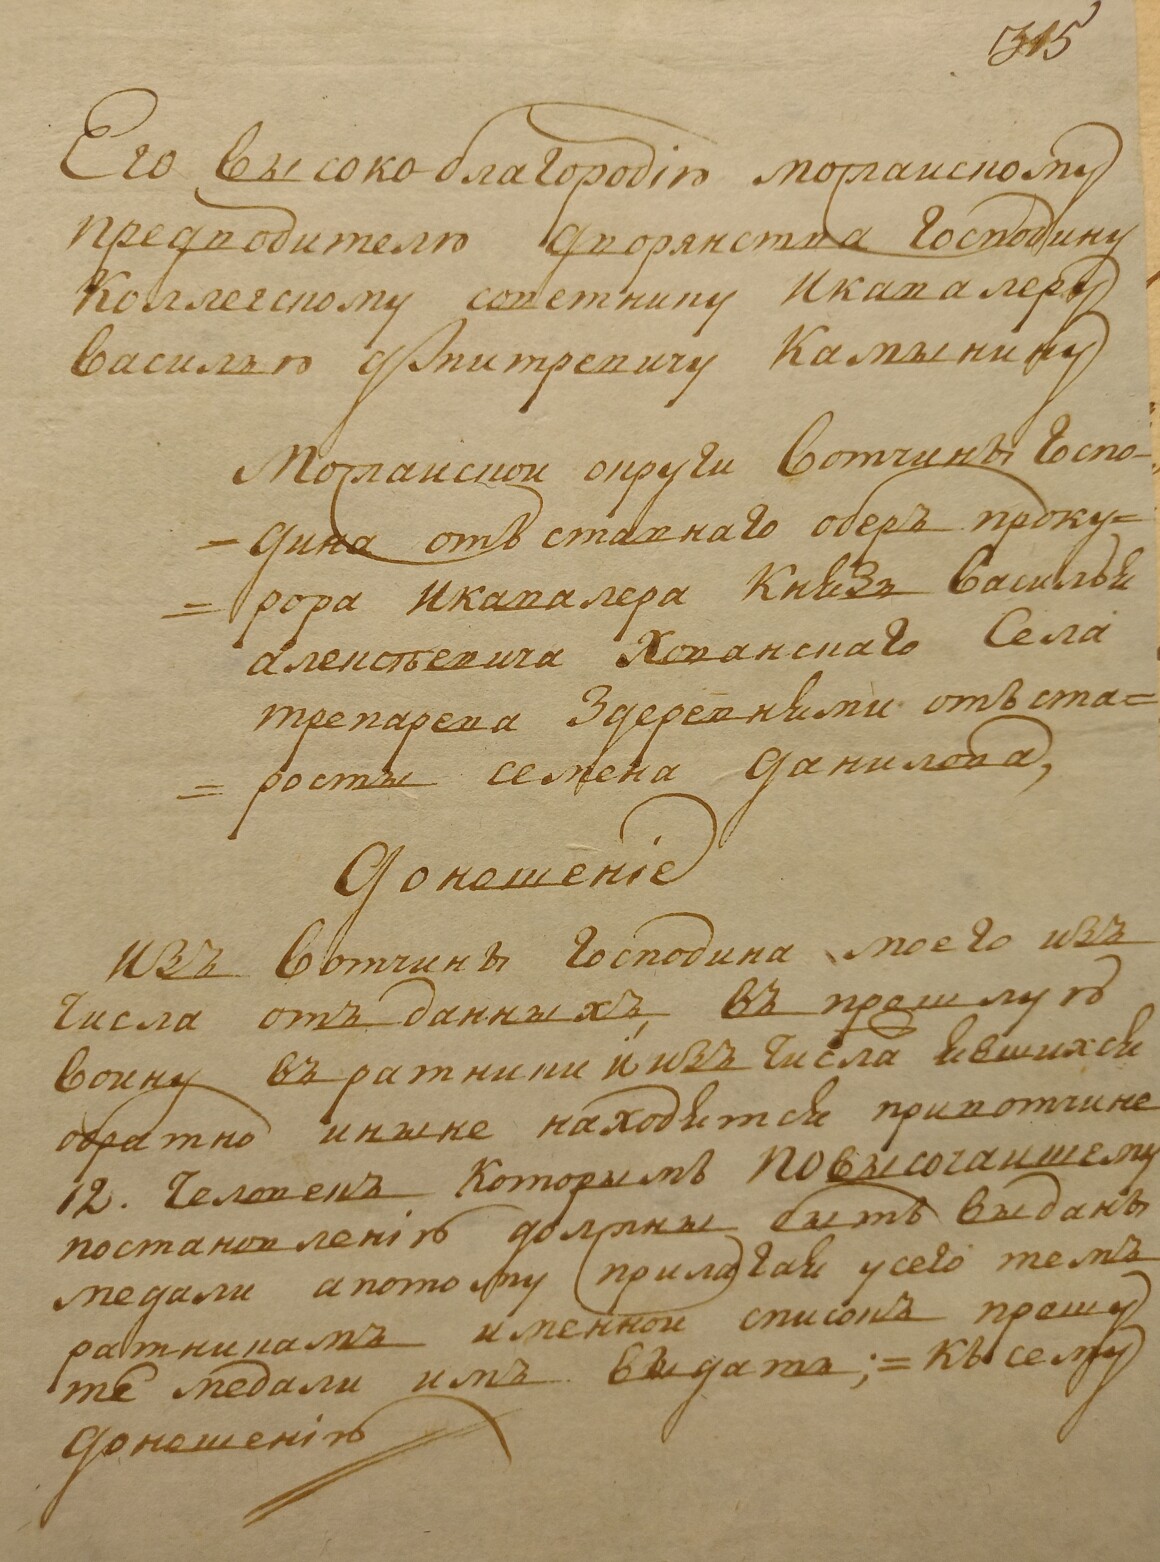 315
Его высокоблагородію можаискому
предводителю дворянства господину
Коллегскому советнику Икавалеру
Василью дмитревичу Камынину
Можаискои округи вотчины госпо-
= дина отъставнаго оберъ проку=
= рора Икавалера Князя Василья
алексѣевича Хованскаго Села
тренарева Здеревнями отъ ста=
= росты семена данилова,
Доношеніе
Изъ вотчины господина моего изъ
числа отъданныхъ, въ прошлую
воину въ ратники и изъ числа явшихся
обратно иныне находятся привотчине
12. человекъ Которымъ Повысочаишему
постановленію должны быть выданы
медали апотому прилагая усего темъ
ратникамъ именнои списокъ прошу
те медали имъ выдать; = Къ сему
доношенію